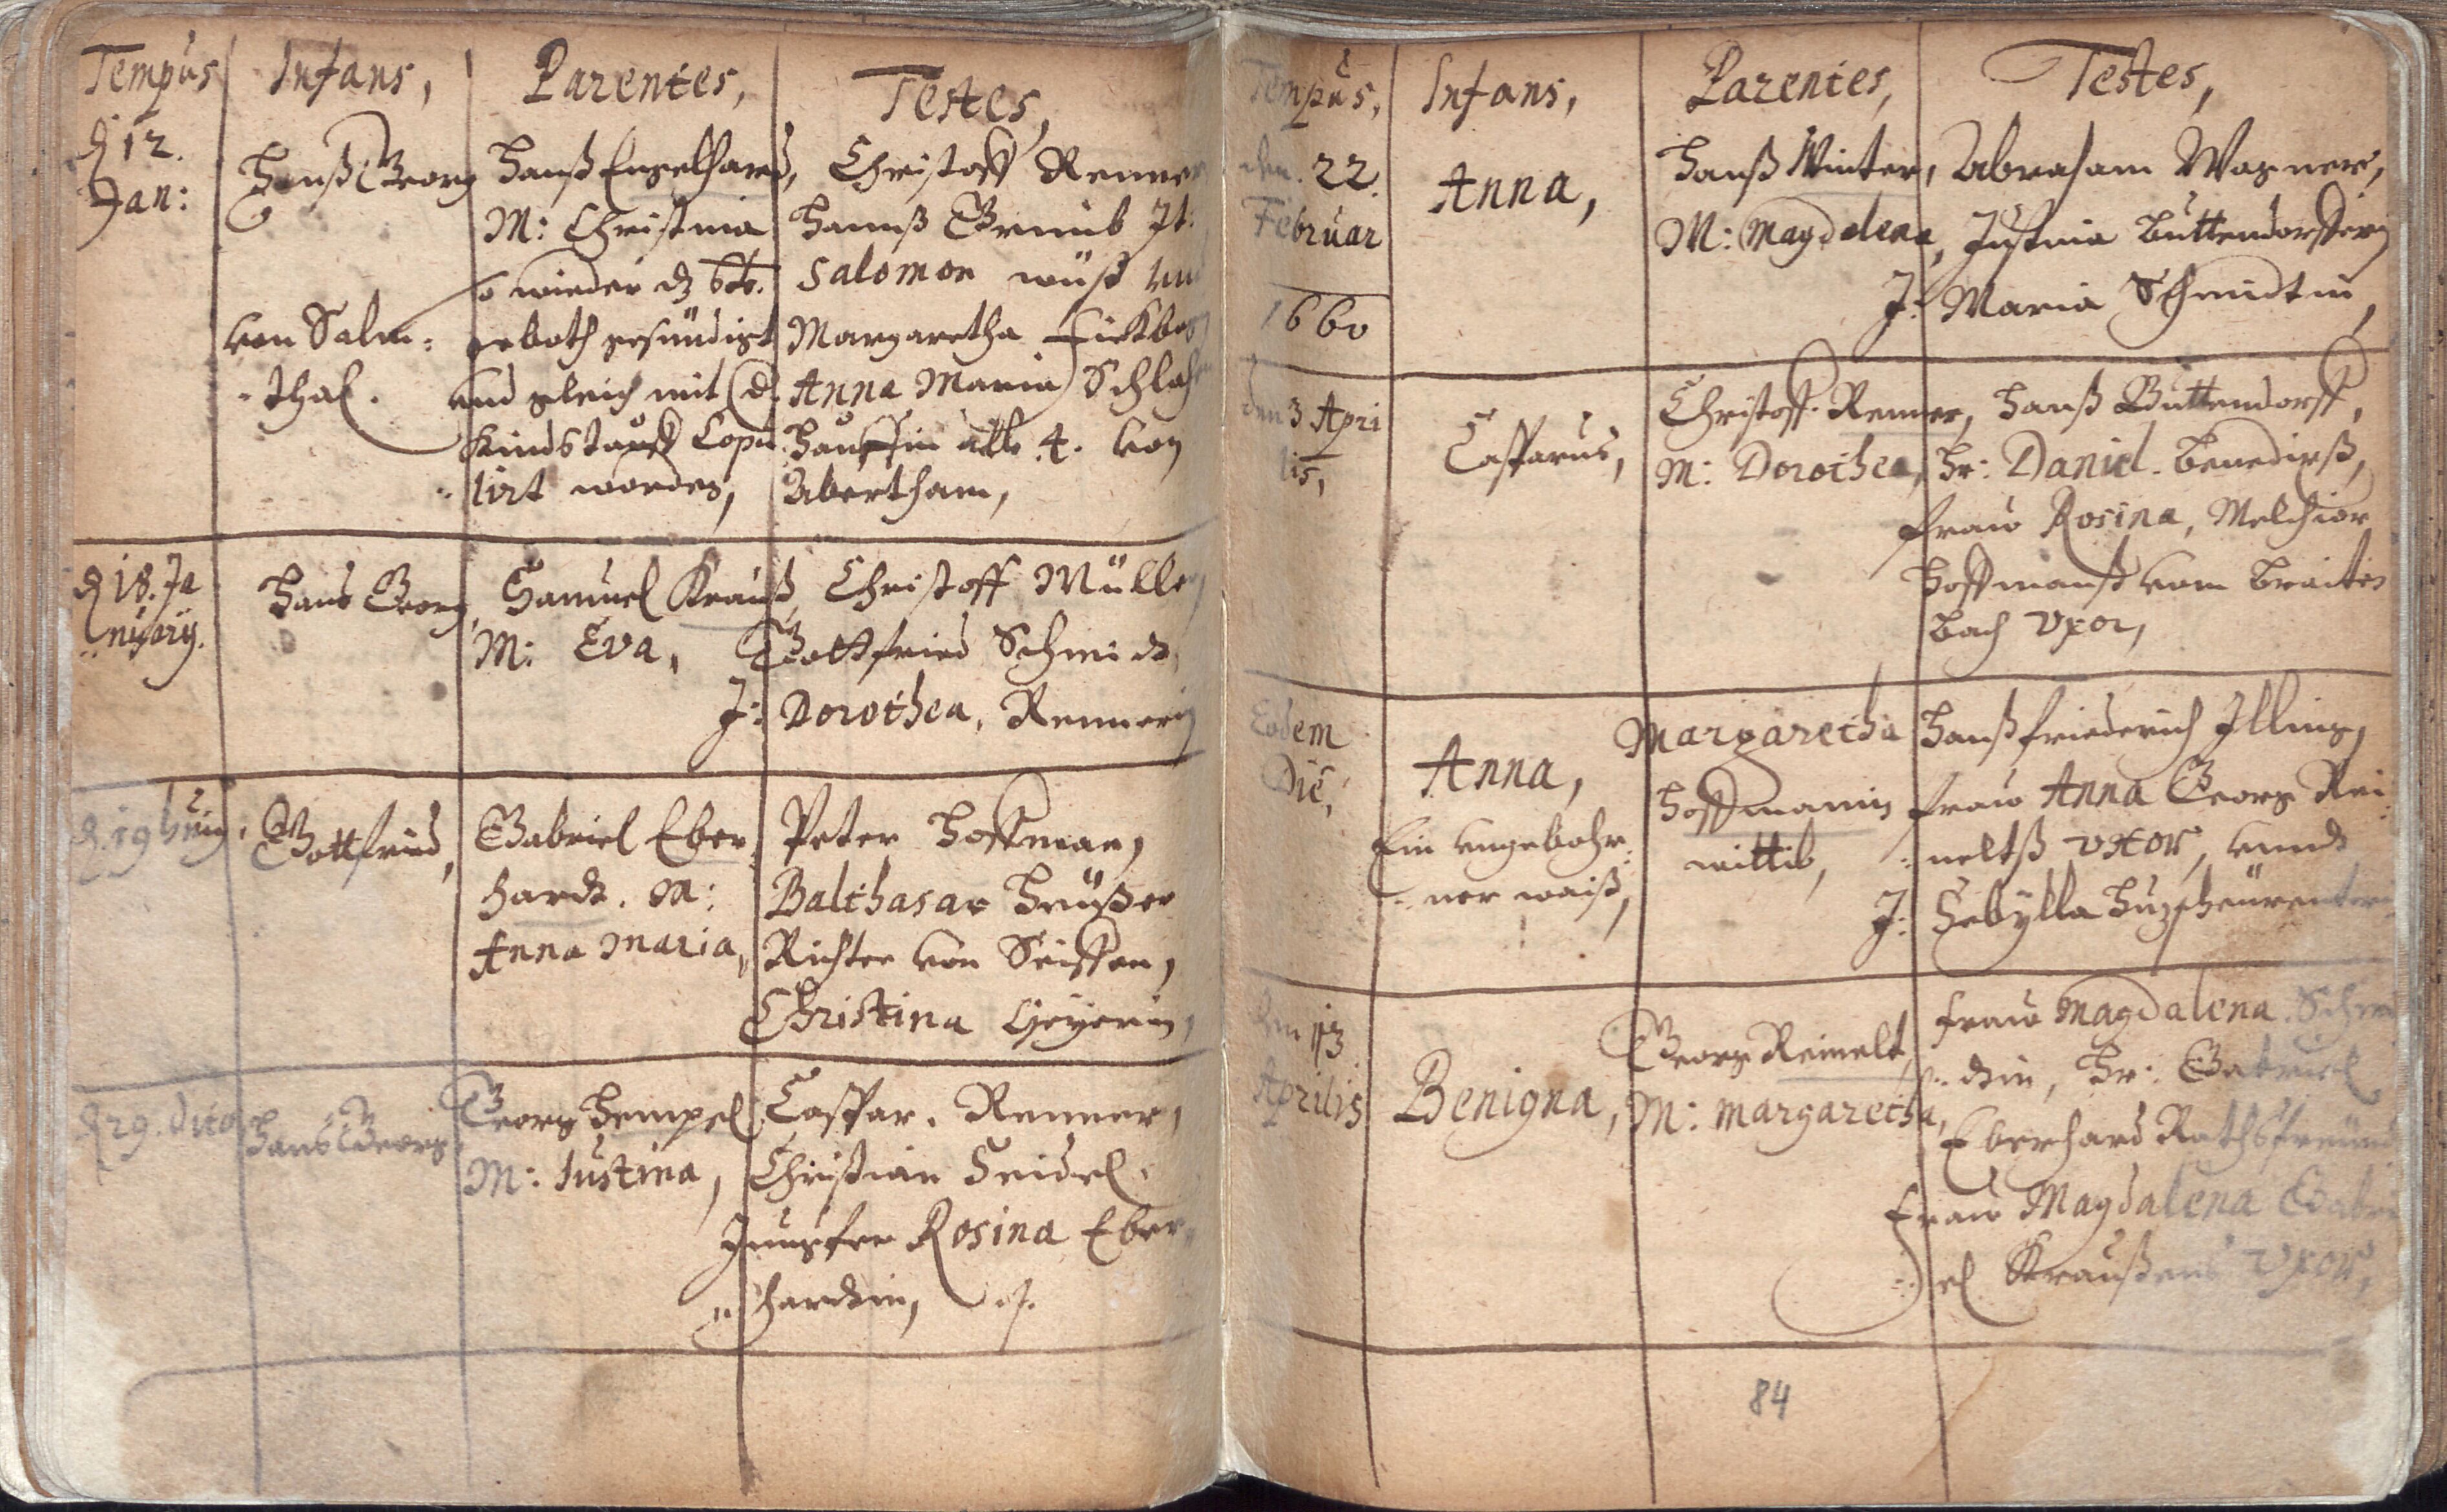 Tempus
Infans,
Parentes,
Testes,
d 12.
Jan:
Hanß Georg
von Salm=
=thal.
Hanß Engelhard,
M: Christina
so wieder dz 6te.
geboth gesündigt
und gleich mit d.
Kindstauff Copu
lirt worden,
Christoff Renner
Hannß
Salomon
Margaretha
Anna Maria
alle 4. von
Abertham,
d 18. Ja
nuary.
Hans Georg,
Samuel Krauß,
M: Eva,
Christoff Müller
Gottfried Schmidt,
J: Dorothea, Rennerin
d. 19
Gottfried,
Gabriel Eber
hardt. M:
Anna Maria,
Peter Hoffman,
Balthasar
Richter von Seiffen,
Christina
d 29. dito
Hans Georg
Georg Hempel
M: Justina,
Caspar. Renner,
Christian Seidel.
Jungfer Rosina Eber
hardtin,
Tempus,
Infans,
Parentes,
Testes,
den. 22.
Februar
1660
Anna,
Hanß Winter,
M: Magdalena,
Abraham Wagner,
Justina Büttendorfferin
J: Maria Schmidtin,
den 3 Apri
lis,
Casparus,
Christoff. Renner,
M: Dorothea,
Hanß Büttendorff,
Hr: Daniel.
Fraw Rosina, Melchior
Hoffmanß vom Breiten
Bach Vxor,
Eodem
Die,
Anna,
Ein
ner waiß,
Margaretha
Hoffmanin
wittib,
Hanß Friederich Illing,
Fraw Anna Georg Rei
neltß Vxor, vnndt
J: Sebylla
den 13
Aprilis
Benigna,
Georg Reinelt
M: Margaretha,
Fraw Magdalena. Schmi
dtin, Hr: Gabriel
Eberhard Rathsfreund
Fraw Magdalena Gabri
el Kraußens Vxor,
84